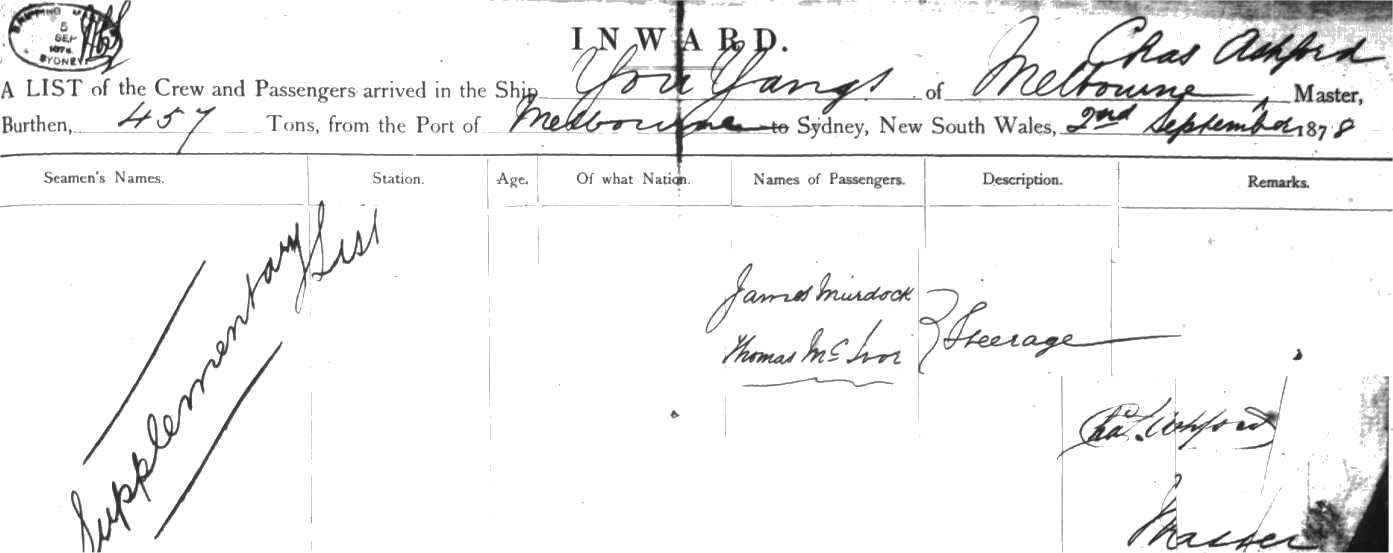 SHIPPING
5
SEP
1878
SYDNEY
INWARD.
Chas Ashford
A LIST of the Crew and Passengers arrived in the Ship You Yangs of Melbourne, Master,
Burthen, 457 Tons, from the Port of Melbourne to Sydney, New South Wales, 2nd September 1878
Seamen's Names. Station. Age. Of what Nation. Names of Passengers. Description. Remarks.
Supplementary List
James Murdock
Thomas McIvor
Steerage
Chas. Ashford
Master